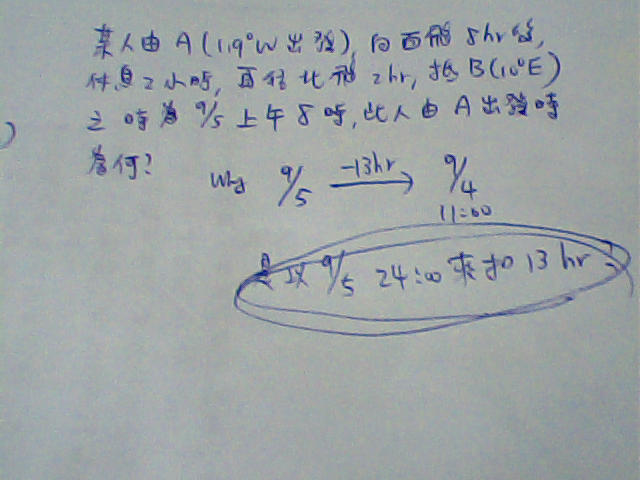 某人由 A (119°W 出發), 向西飛 8hr 後,
休息 2 小時, 再往北飛 2hr, 抵 B(10°E)
之時為 9/5 上午 8 時, 此人由 A 出發時
為何?
Why 9/5 -13hr → 9/4
11:00
是以 9/5 24:00 來扣 13 hr